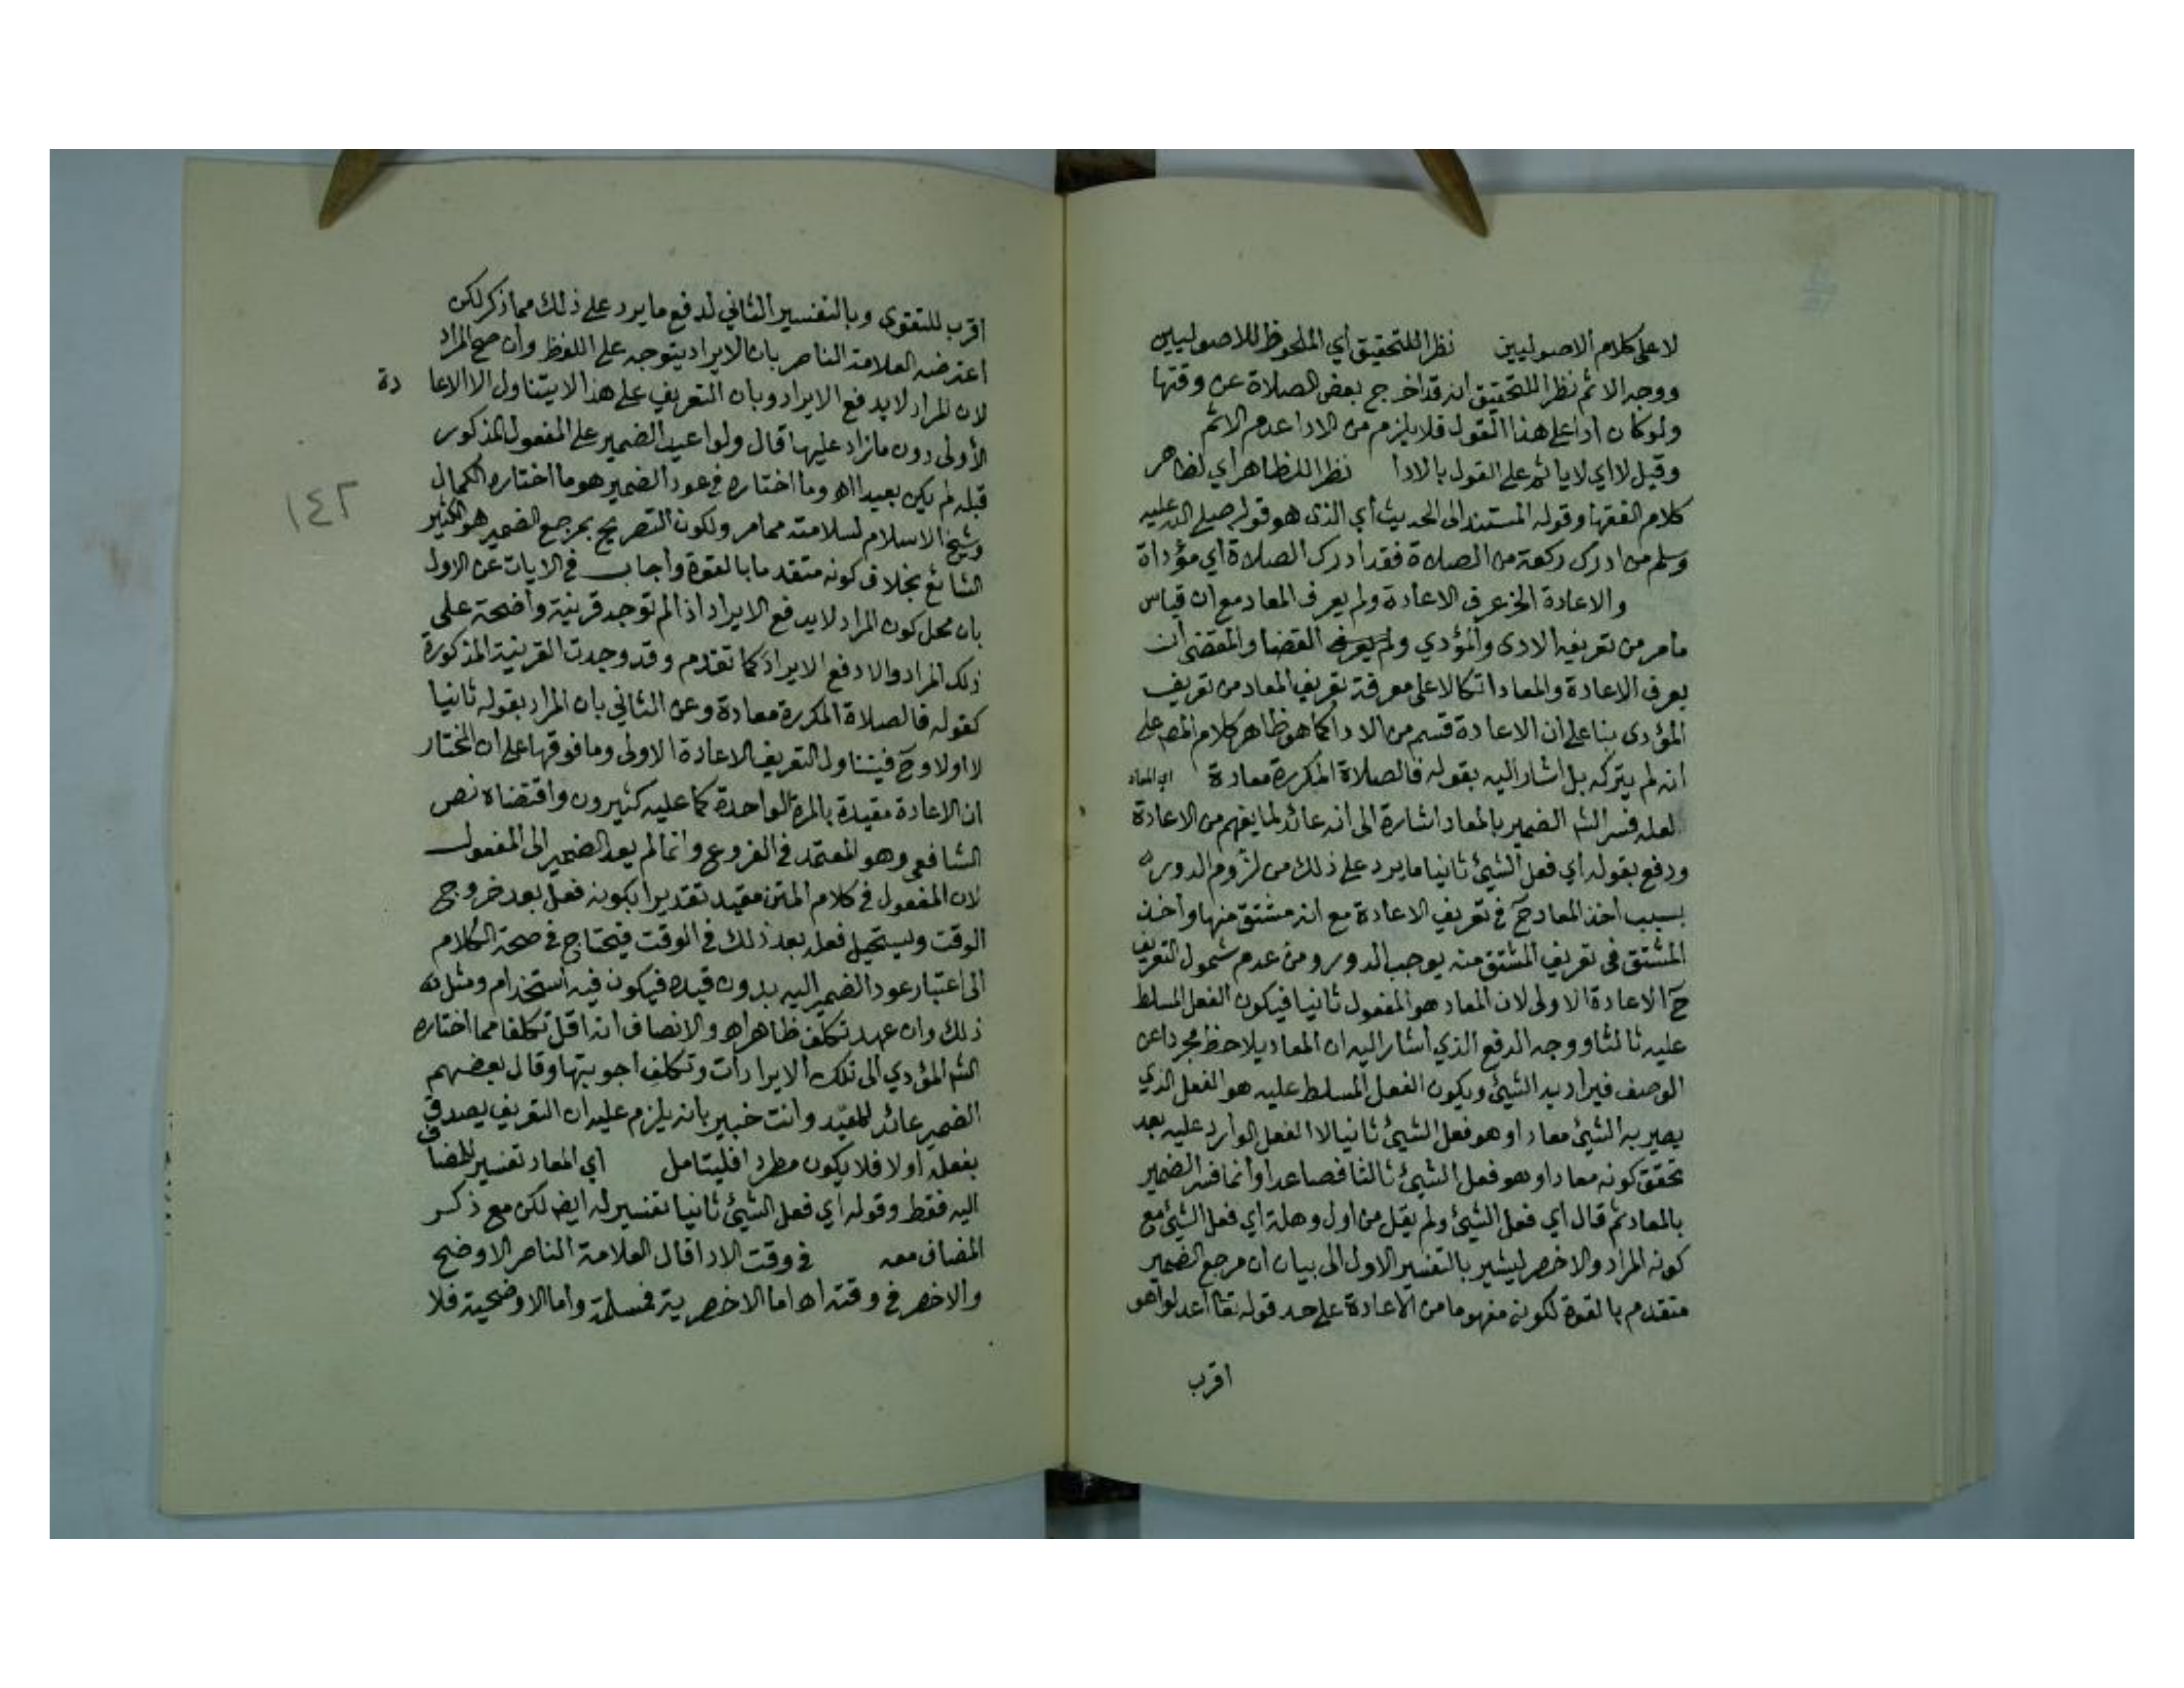 لا على كلام الاصوليين نظرا للتحقيق أي الملحوظ للاصوليين
ووجه الاثم نظرا للتحقيق انه قد اخرج بعض الصلاة عن وقتها
ولو كان ادا على هذا القول فلا يلزم من الادا عدم الاثم
وقيل لا اي لا ياثم على القول بالادا نظرا للظاهر أي لظاهر
كلام الفقها وقوله المستند الى الحديث أي الذي هو قوله صلى الله عليه
وسلم من ادرك ركعة من الصلاة فقد ادرك الصلاة أي مؤداة
والاعادة الخ عرف الاعادة ولم يعرف المعاد مع أن قياس
مامر من تعريفه الادى والمؤدي ولم يعرفه القضا والمقضى أن
يعرف الاعادة والمعاد اتكالا على معرفة تعريف المعاد من تعريف
المؤدى بنا على ان الاعادة قسم من الادا كما هو ظاهر كلام المص على
انه لم يتركه بل اشار اليه بقوله فالصلاة المكررة معادة اي المعاد
لعله فسر الش الضمير بالمعاد اشارة الى انه عائد لما يفهم من الاعادة
ودفع بقوله أي فعل الشيئ ثانيا ما يرد على ذلك من لزوم الدور
بسبب اخذ المعاد ح في تعريف الاعادة مع انه مشتق منها وأخذ
المشتق في تعريف المشتق منه يوجب الدور ومن عدم شمول التعريف
ح الاعادة الاولى لان المعاد هو المفعول ثانيا فيكون الفعل المسلط
عليه ثالثا ووجه الدفع الذي اشار اليه ان المعاد يلاحظ مجردا عن
الوصف فيراد به الشيئ ويكون الفعل المسلط عليه هو الفعل الذي
يصير به الشيئ معادا وهو فعل الشيئ ثانيا لا الفعل الوارد عليه بعد
تحقق كونه معادا وهو فعل الشيئ ثالثا فصاعدا وانما فسر الضمير
بالمعاد ثم قال أي فعل الشيئ ولم يقل من اول وهلة أي فعل الشيئ مع
كونه المراد والاخصر ليشير بالتفسير الاول الى بيان ان مرجع الضمير
متقدم بالقوة لكونه مفهوما من الاعادة على حد قوله تعا اعدلوا هو
اقرب
اقرب للتقوى وبالتفسير الثاني لدفع ما يرد على ذلك مما ذكر لكن
اعترضه العلامة الناصر بان الايراد يتوجه على اللفظ وأن صح المراد
لان المراد لا يدفع الايراد وبان التعريف على هذا لا يتناول الا الاعا دة
الأولى دون ما زاد عليها قال ولو اعيد الضمير على المفعول المذكور
قبله لم يكن بعيدا اه وما اختاره في عود الضمير هو ما اختاره الكمال
وشيخ الاسلام لسلامته مما مر ولكون التصريح بمرجع الضمير هو الكثير
الشائع بخلاف كونه متقدما بالقوة وأجاب في الايات عن الاول
بان محل كون المراد لا يدفع الايراد اذا لم توجد قرينة واضحة على
ذلك المراد والا دفع الايراد كما تقدم وقد وجدت القرينة المذكورة
كقوله فالصلاة المكررة معادة وعن الثاني بان المراد بقوله ثانيا
لا اولا وح فيتناول التعريف الاعادة الاولى وما فوقها على ان المختار
ان الاعادة مقيدة بالمرة الواحدة كما عليه كثيرون واقتضاه نص
الشافعي وهو المعتمد في الفروع وانما لم يعد الضمير الى المفعول
لان المفعول في كلام المتن مقيد تقديرا بكونه فعل بعد خروج
الوقت ويستحيل فعله بعد ذلك في الوقت فيحتاج في صحة الكلام
الى اعتبار عود الضمير اليه بدون قيده فيكون فيه استخدام ومثل
ذلك وان عهد تكلف ظاهر اه والانصاف انه اقل تكلفا مما اختاره
الش المؤدي الى تلك الايرادات وتكلف اجوبتها وقال بعضهم
الضمير عائد للمقيد وانت خبير بانه يلزم عليه ان التعريف يصدق
بفعله أولا فلا يكون مطردا فليتامل أي المعاد تفسير للمضاف
اليه فقط وقوله اي فعل الشيئ ثانيا تفسير له ايض لكن مع ذكر
المضاف معه في وقت الادا قال العلامة الناصر الاوضح
والاخصر في وقته اه اما الاخصرية فمسلمة وأما الاوضحية فلا
١٤٢